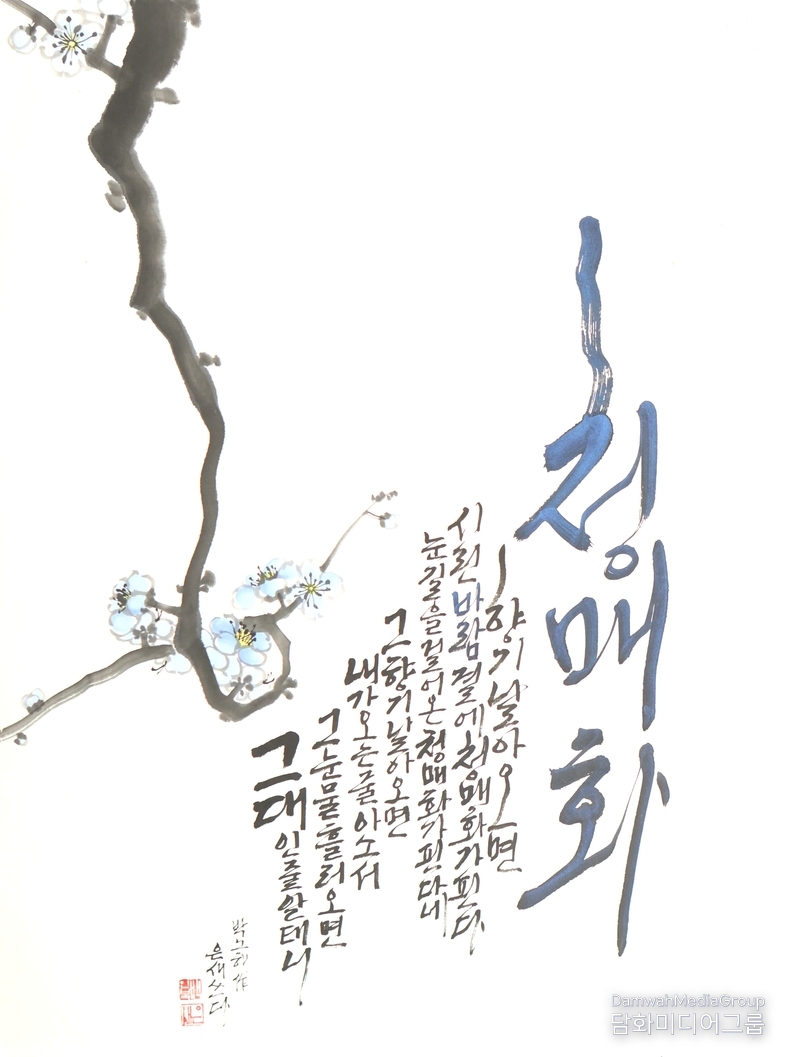 청매화
향기날아오면
시린바람결에청매화가핀다
눈길을걸어온청매화가핀다네
그향기날아오면
내가오는줄아소서
그눈물흘러오면
그대인줄알테니
은새쓰다
DamwahMediaGroup
담화미디어그룹